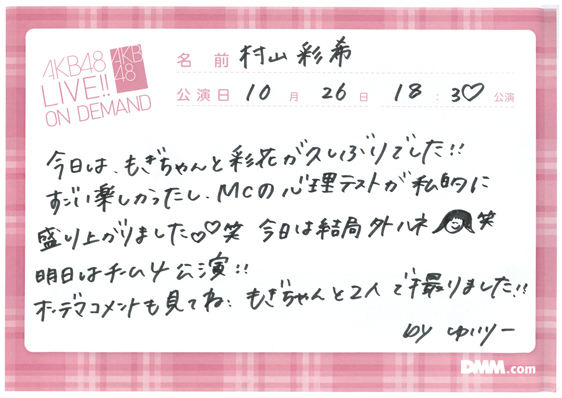 AKB48
LIVE!!
ON DEMAND
AKB
48
名前 村山彩希
公演日 10月 26日 18:30 公演
今日は、もぎちゃんと彩花が久しぶりでした!!
すごい楽しかったし、MCの心理テストが私的に
盛り上がりました♡♡笑 今日は結局外ハネ 笑
明日はチーム4公演!!
オンデマコメントも見てね: もぎちゃんと2人で撮りました!!
by ゆいりー
DMM.com